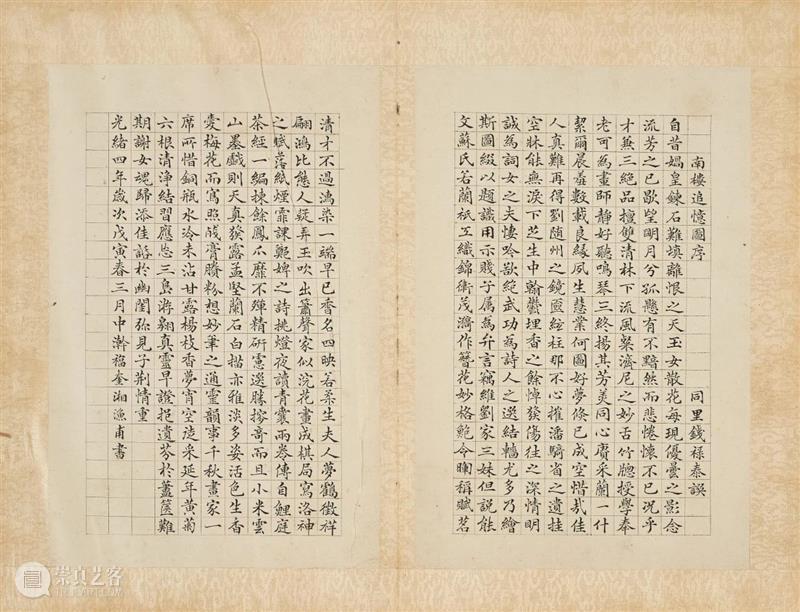 南樓追憶圖序
同里錢祿泰譔
自昔媧皇鍊石難填離恨之天玉女散花每現優曇之影念
流芳之已歇望明月兮孤懸有不黯然而悲惓懷不已況乎
才兼三絕品擅雙清林下流風粲濟尼之妙舌竹牕授學奉
老可為畫師靜好聽鳴琴三終揚其芳美同心賡采蘭一什
絜爾晨羞數載良緣夙生慧業何圖好夢倏已成空惜哉佳
人真難再得劉隨州之鏡匳經柱那不心摧潘騎省之遺挂
空牀能無淚下芝生中翰鬱埋香之餘悼發傷往之深情明
誠為詞女之夫悽吟欲絕武功為詩人之選結轖尤多乃繪
斯圖綴以題識用示賤子屬為弁言竊維劉家三妹但說能
文蘇氏若蘭祇工織錦衛茂漪作簪花妙格鮑令暉稱賦茗
清才不過鴻染一端早已香名四映若柔生夫人夢鶴徵祥
翩鴻比態人疑弄玉吹出簫聲家似浣花畫成棋局寫洛神
之賦落紙煙霏課鄭婢之詩挑燈夜讀青囊兩卷傳自鯉庭
茶經一編揀餘鳳爪靡不殫精研慮選勝搜奇而且小米雲
山墨戲則天真發露孟堅蘭石白描亦雅淡多姿活色生香
愛梅花而寫照殘膏賸粉想妙筆之通靈韻事千秋畫家一
席所惜銅瓶水冷未沾甘露楊枝香夢宵空徒采延年黃菊
六根清淨結習應忘三島游翱真靈早證挹遺芬於藎篋難
期謝女魂歸添佳話於幽閨弥見子荊情重
光緒四年歲次戊寅春三月中澣福奎湘漁甫書
崇真艺客